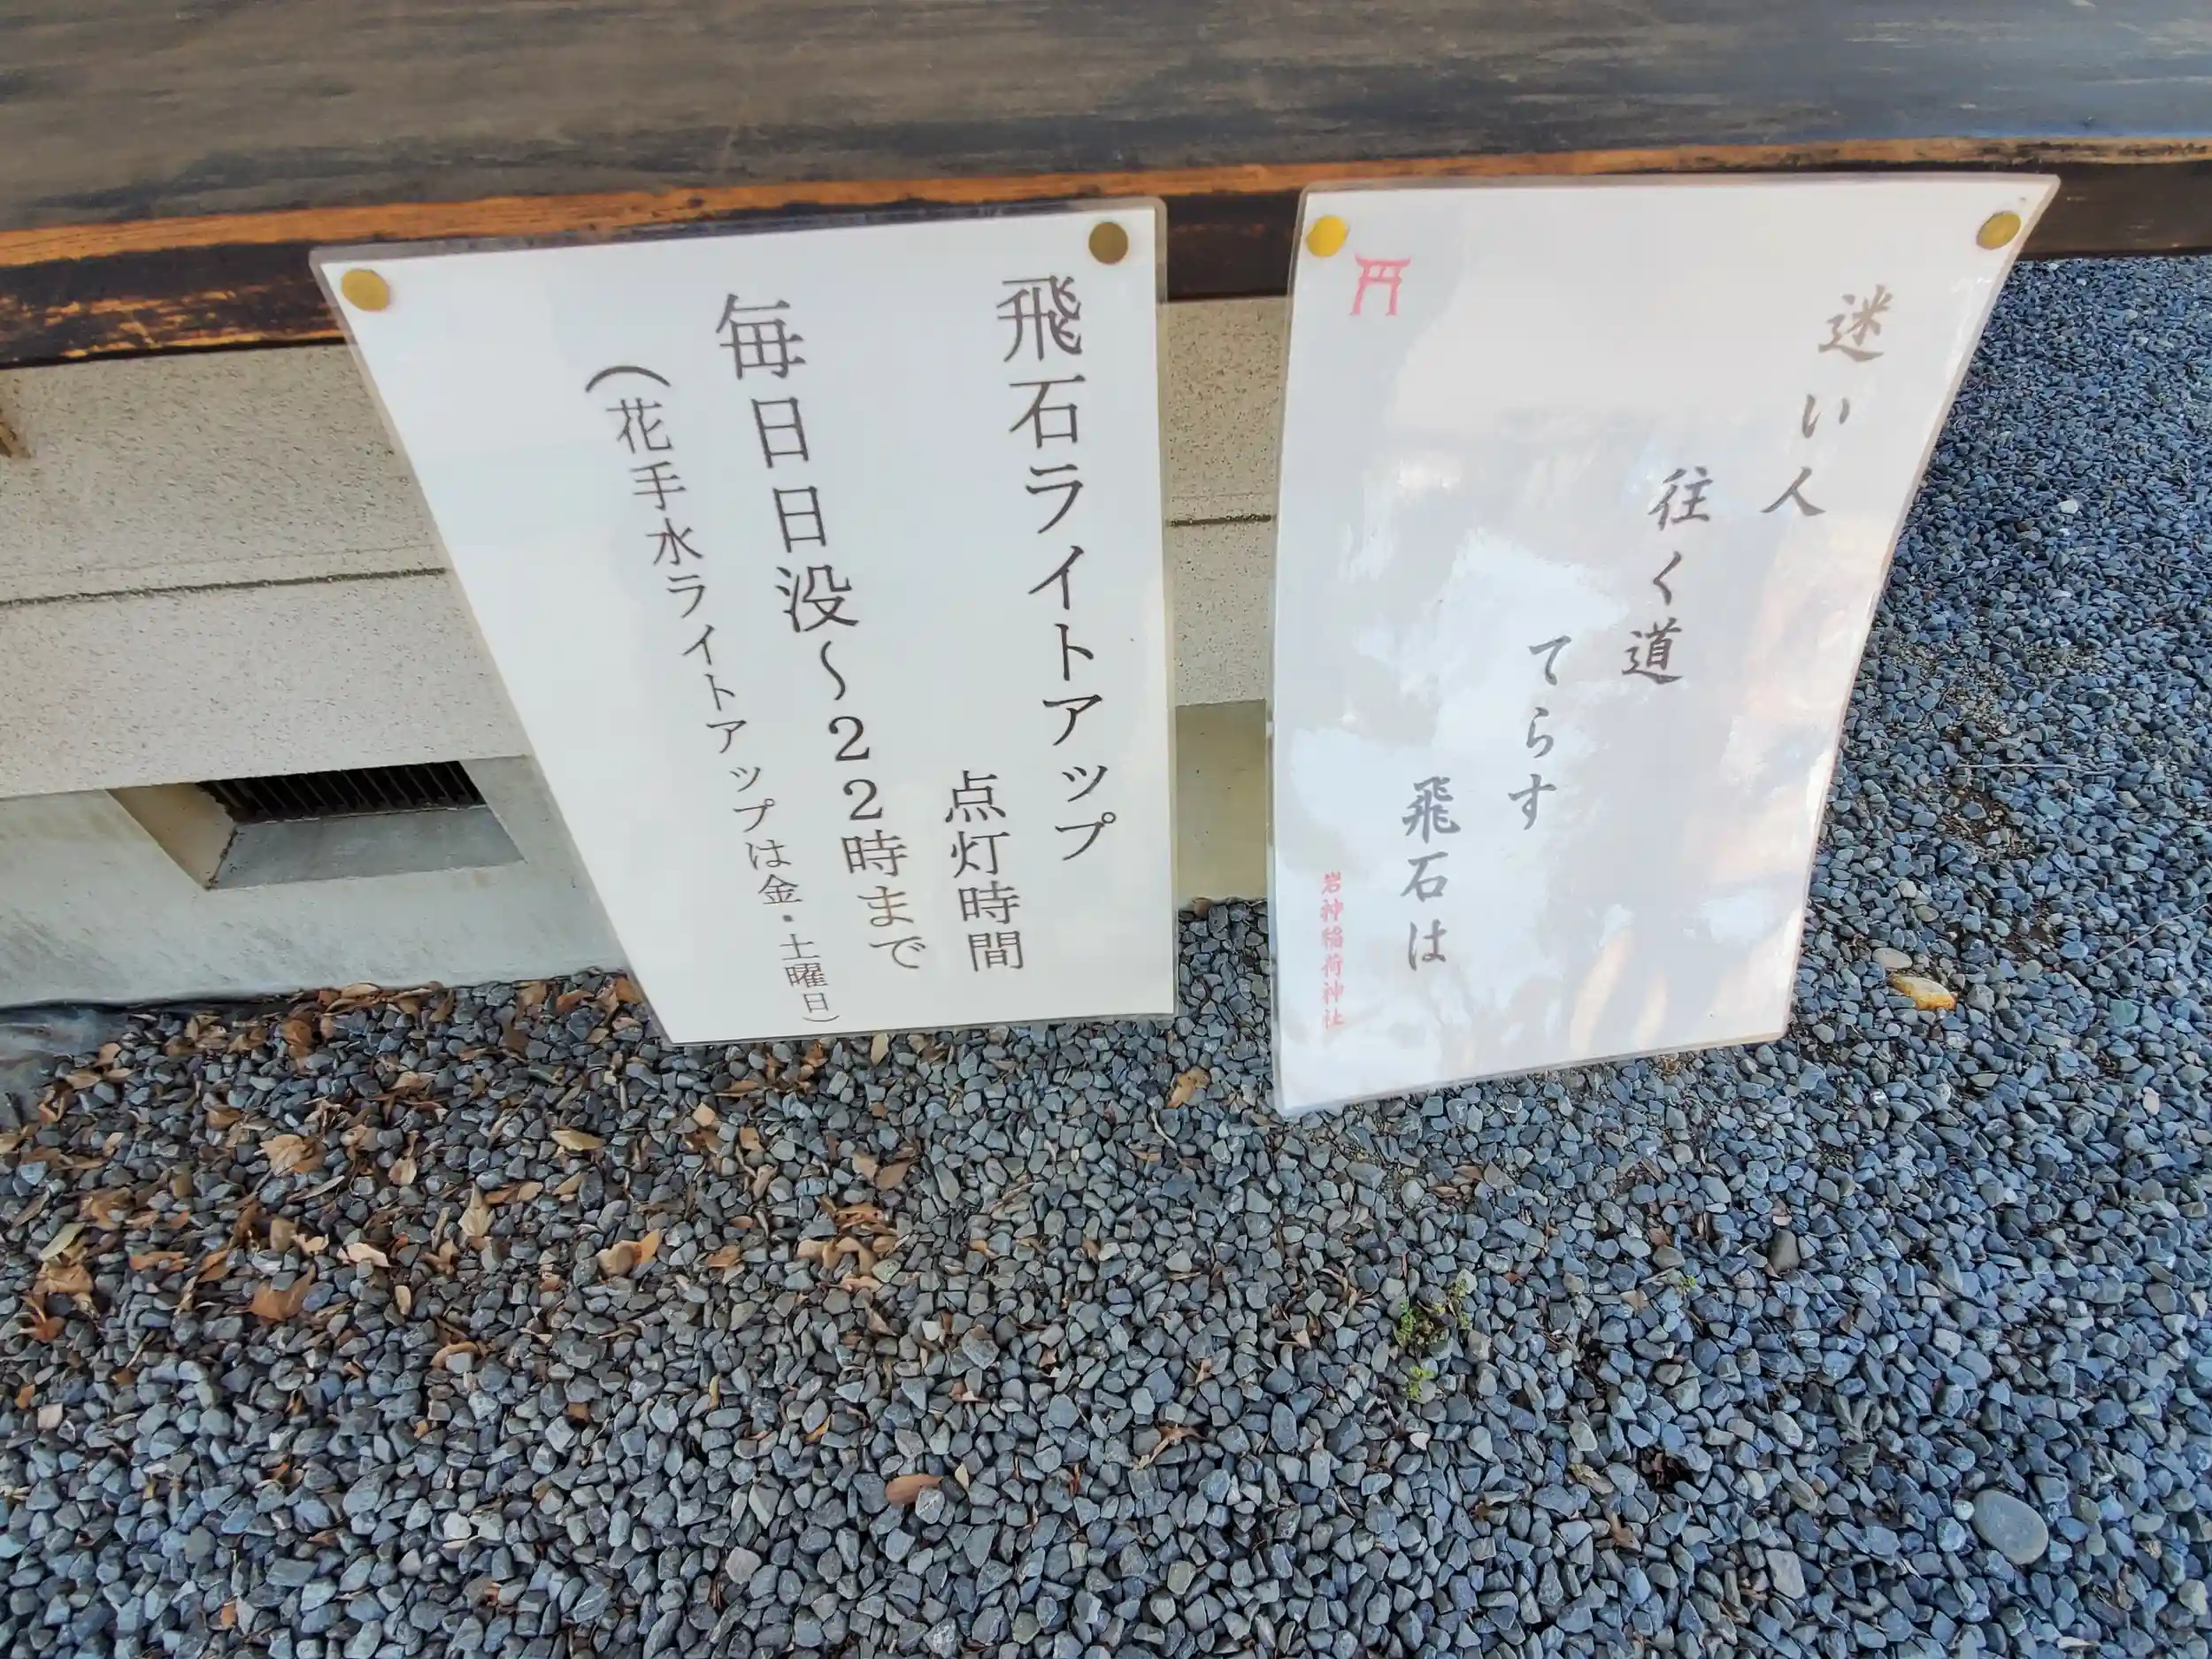 迷い人
往く道
てらす
飛石は
岩神稲荷神社
飛石ライトアップ
点灯時間
毎日日没～22時まで
（花手水ライトアップは金・土曜日）